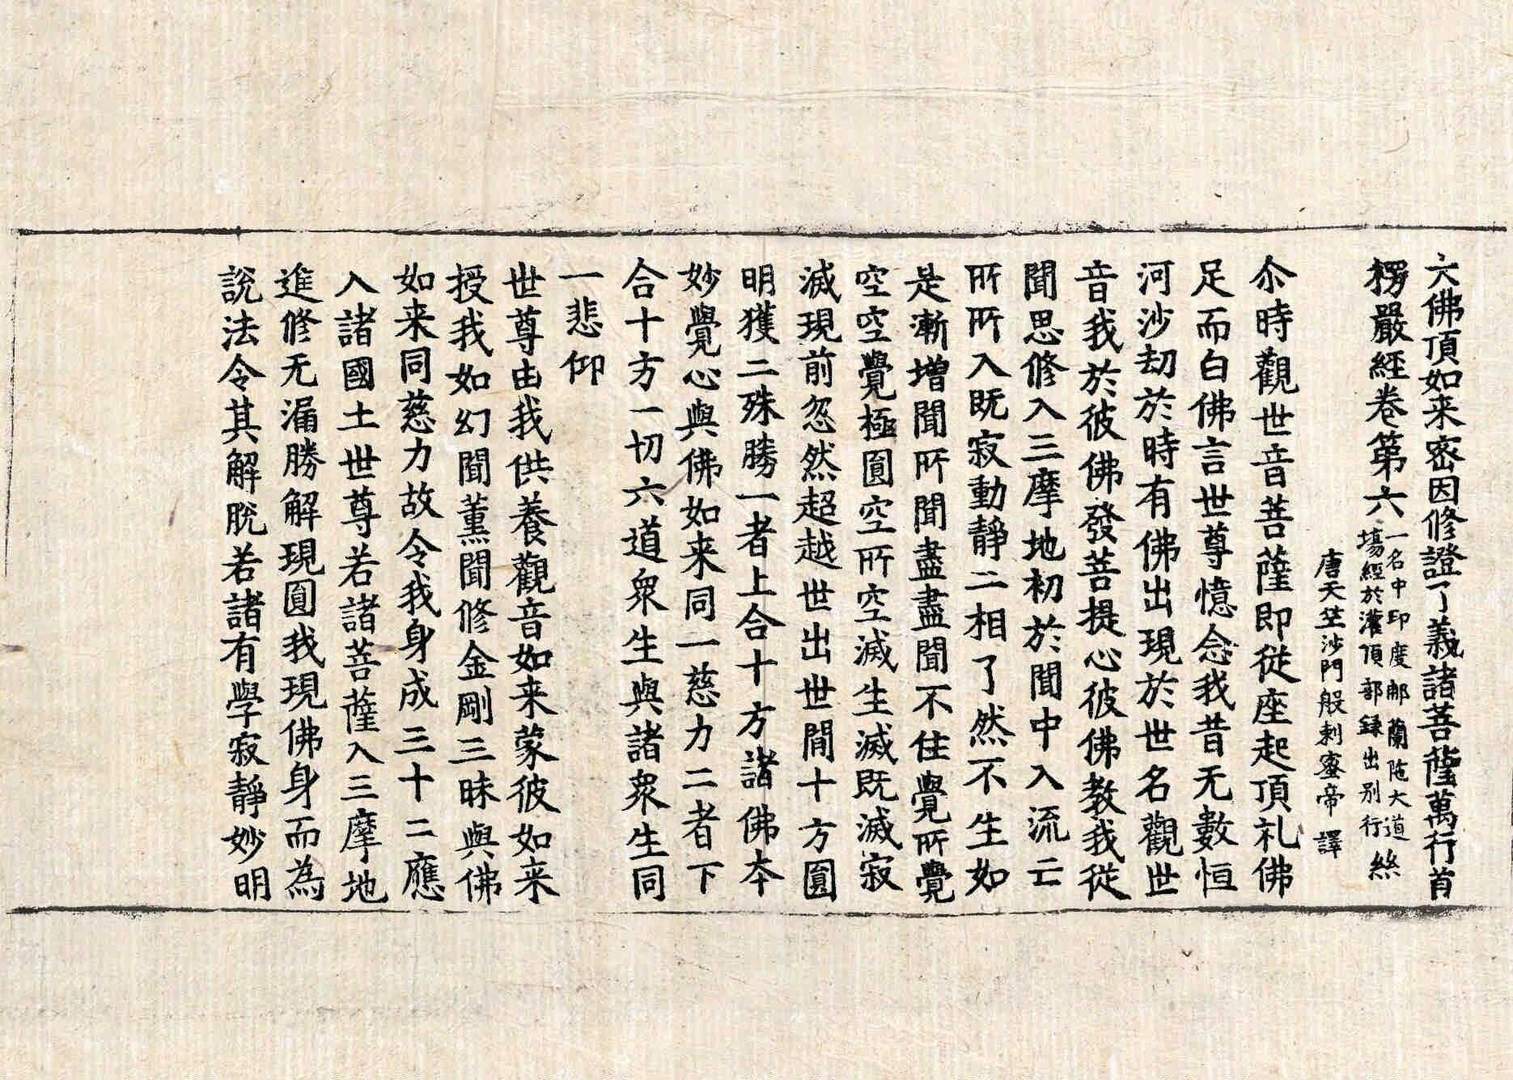 大佛頂如来密因修證了義諸菩薩萬行首
楞嚴經卷第六
一名中印度䣕蘭陁大道
塲經於灌頂部録出別行
唐天竺沙門般剌蜜帝 譯
尒時觀世音菩薩即従座起頂礼佛
足而白佛言世尊憶念我昔无數恒
河沙劫於時有佛出現於世名觀世
音我於彼佛發菩提心彼佛教我従
聞思修入三摩地初於聞中入流亡
所所入既寂動靜二相了然不生如
是漸增聞所聞盡盡聞不住覺所覺
空空覺極圓空所空滅生滅既滅寂
滅現前忽然超越世出世間十方圓
明獲二殊勝一者上合十方諸佛本
妙覺心與佛如来同一慈力二者下
合十方一切六道衆生與諸衆生同
一悲仰
世尊由我供養觀音如来蒙彼如来
授我如幻聞薰聞修金剛三昧與佛
如来同慈力故令我身成三十二應
入諸國土世尊若諸菩薩入三摩地
進修无漏勝解現圓我現佛身而為
説法令其解脱若諸有學寂靜妙明